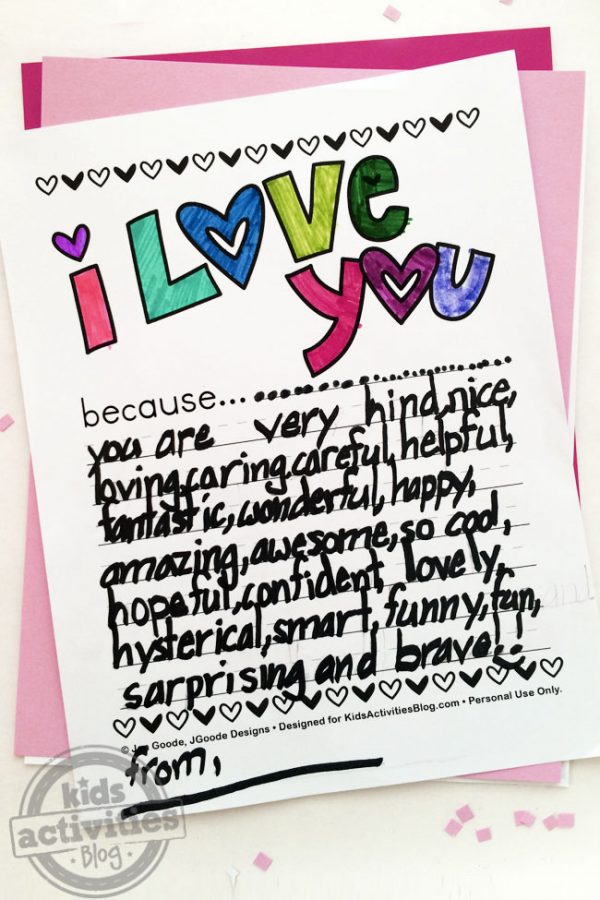 i LOVe
you
because...
you are very hind,nice,
loving,caring,careful,helpful,
fantastic,wonderful,happy,
amazing,awesome,so cool,
hopeful,confident, lovely,
hysterical,smart,funny,fun,
sarprising and brave!.!
© J Goode, JGoode Designs • Designed for KidsActivitiesBlog.com • Personal Use Only.
from,
kids
activities
BLog